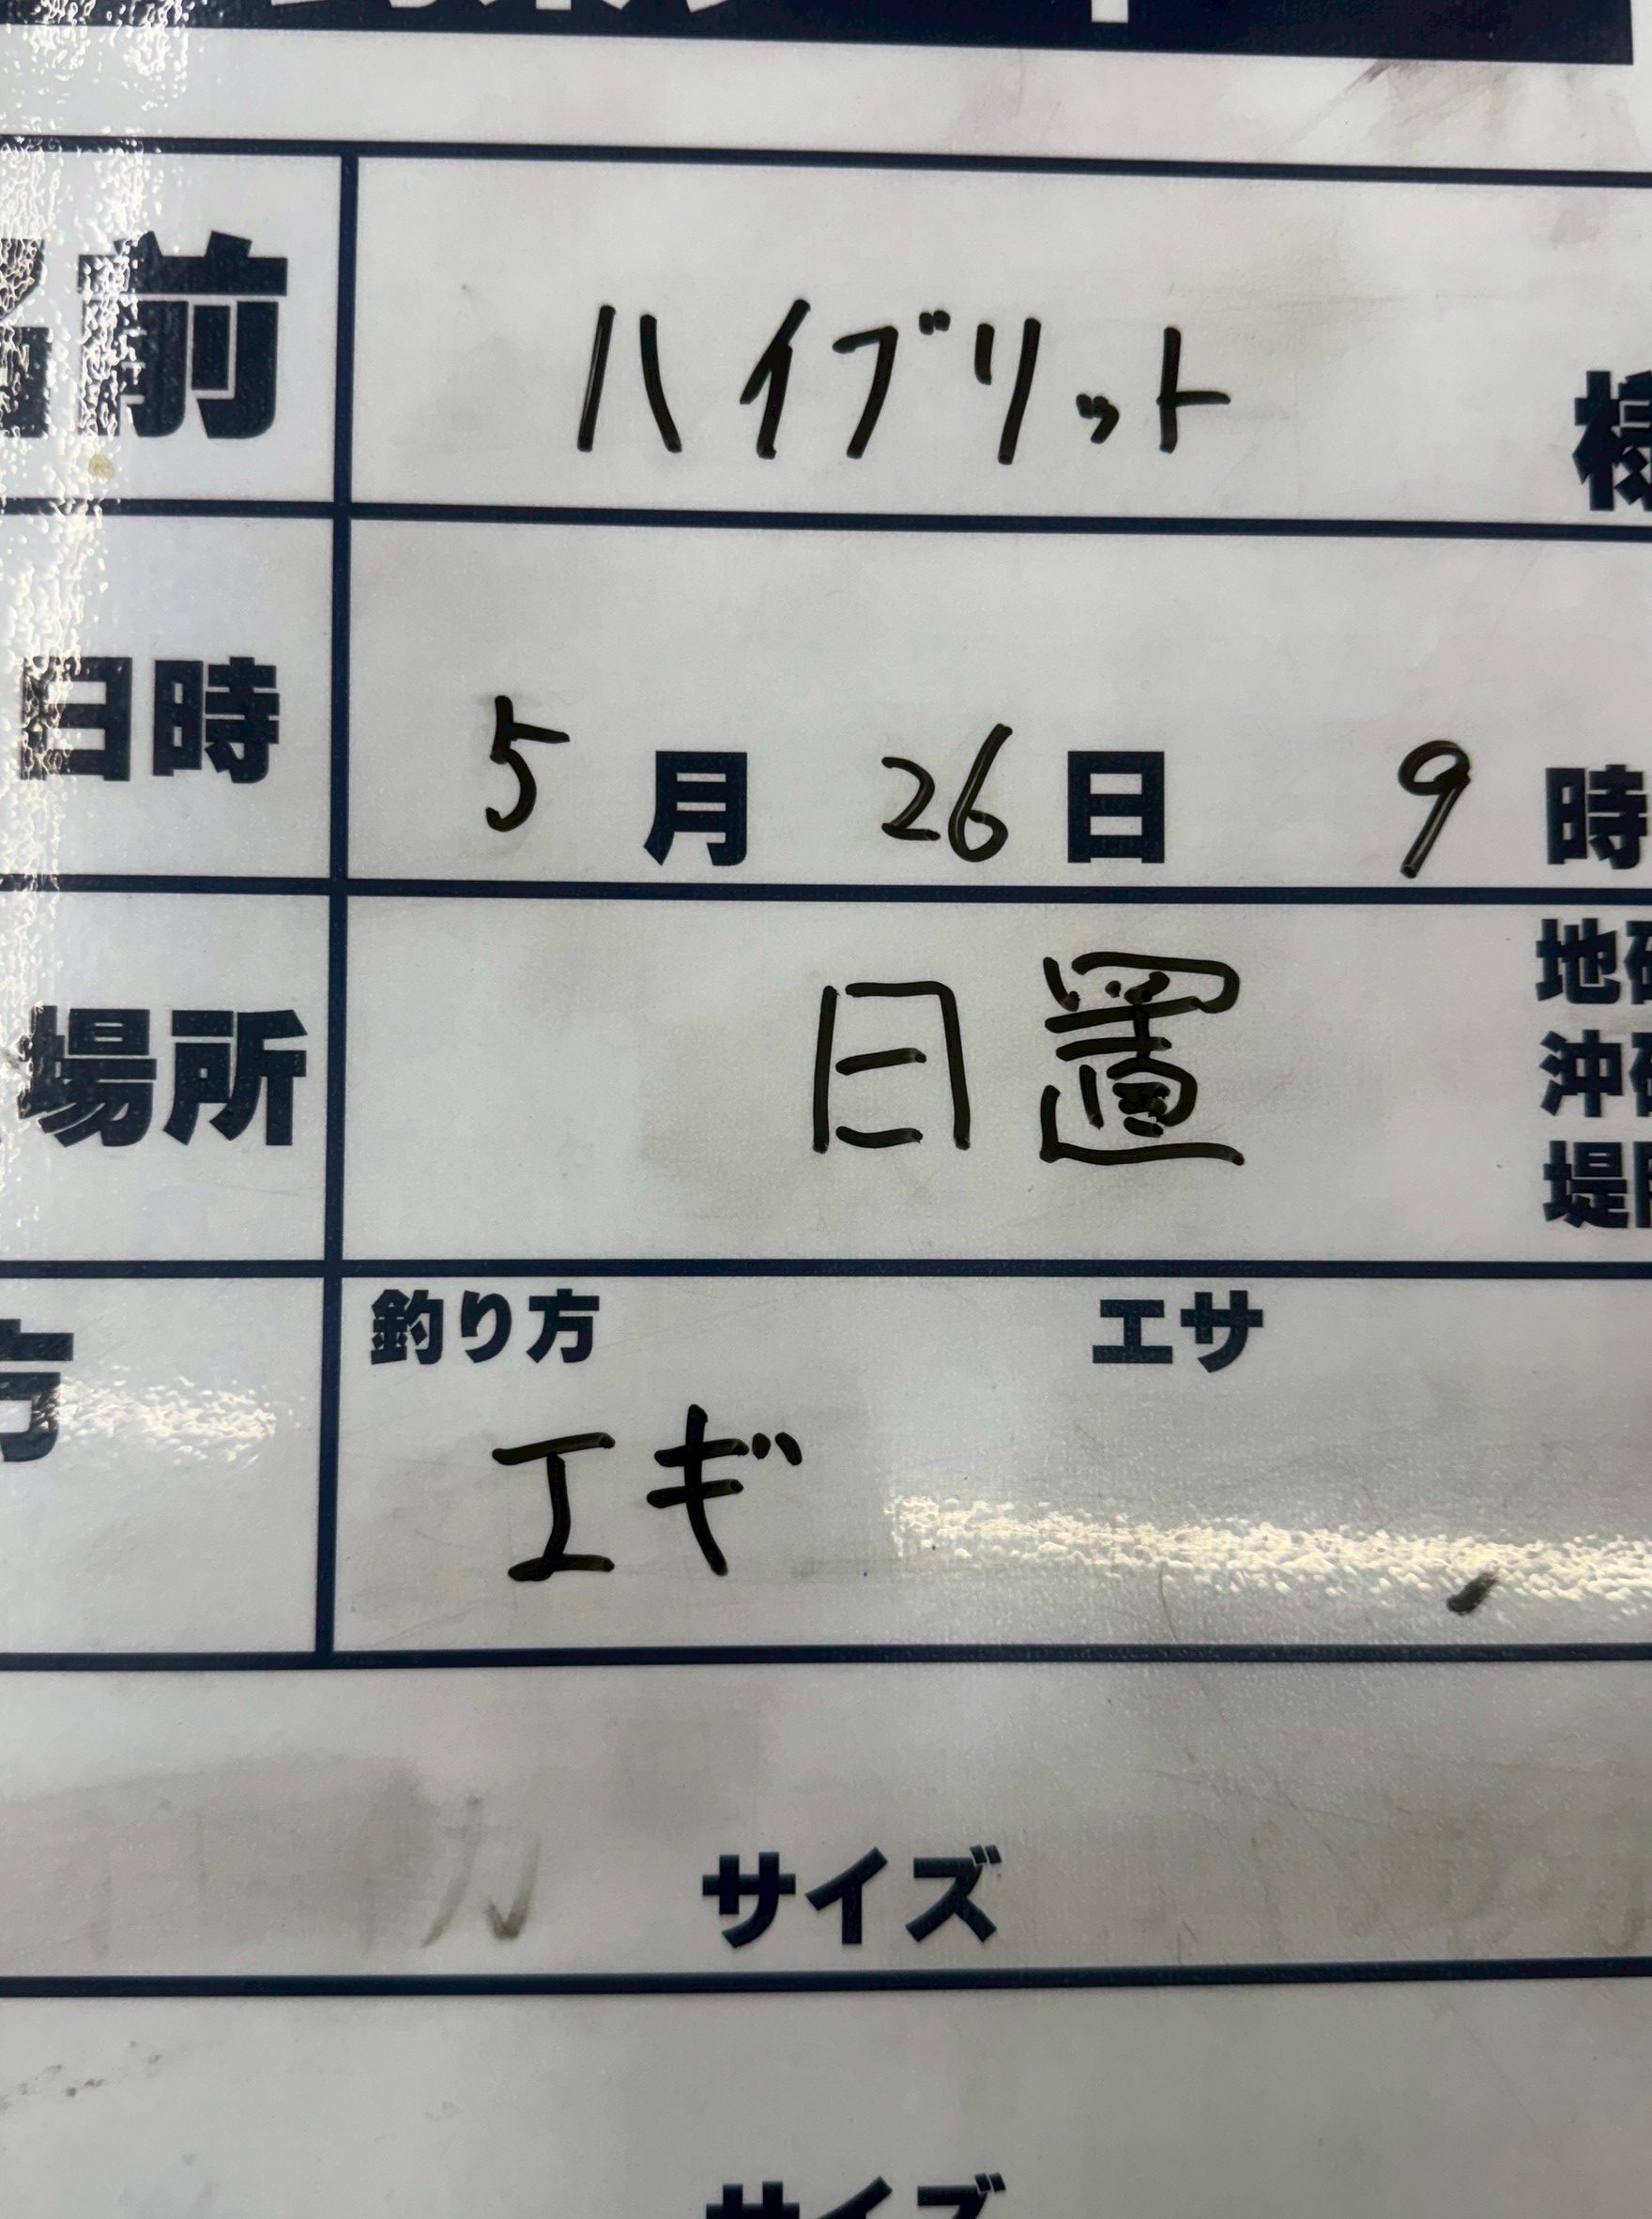 前 ハイブリット 様
日時 5月 26日 9時
場所 日置
地
沖
堤
釣り方 エサ
方
エギ
サイズ
サイズ